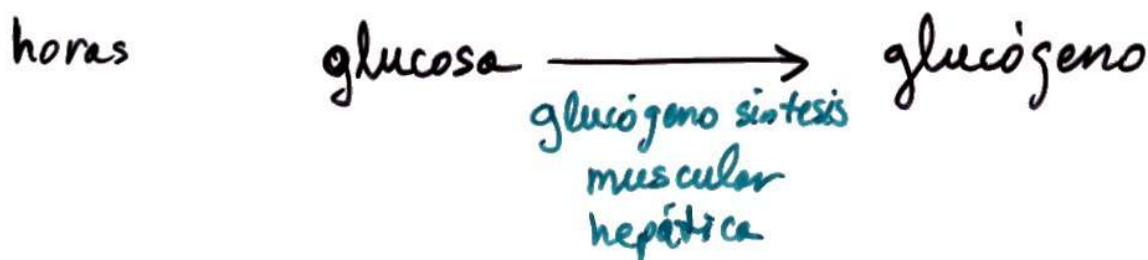 horas glucosa → glucógeno
glucógeno síntesis
muscular
hepática